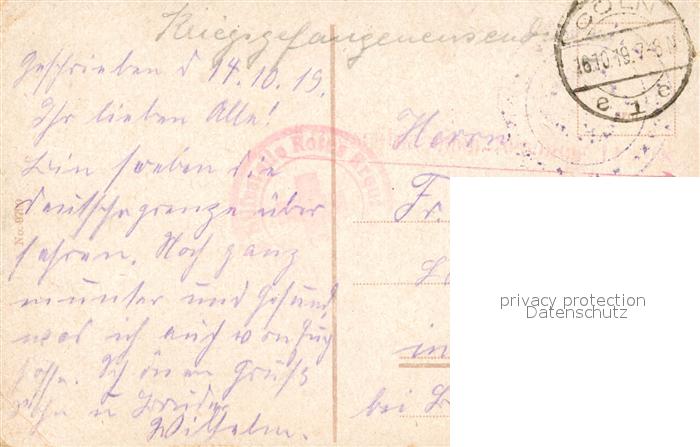 Kriegsgefangenensendung
Geschrieben d 14.10.19.
Ihr lieben Alle!
Bin soeben die
deutsche grenze über
fahren. Noch ganz
munter und Gesund,
was ich auch von Euch
hoffe. Schönen Gruß
Sohn u Bruder
Wilhelm.
CÖLN
16.10.19.7-8N
Rotes Kreuz
Herrn
Fr.
in
bei B
No. 9710
privacy protection
Datenschutz